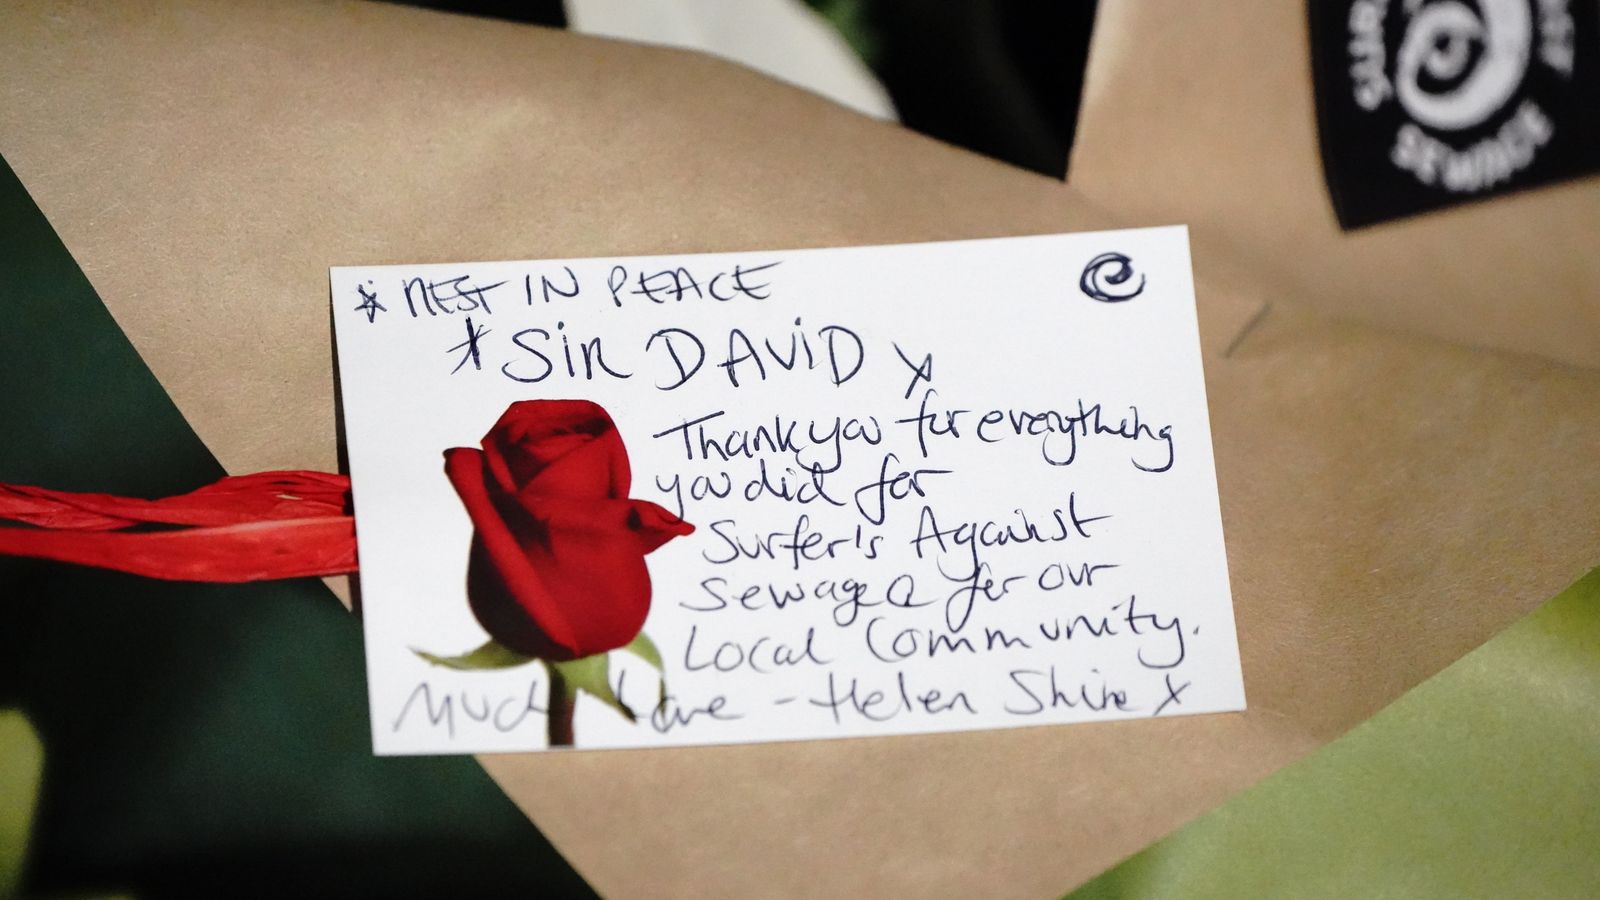 * REST IN PEACE
* SiR DAViD x
Thank you for everything
you did for
Surfer's Against
Sewage & for our
Local Community.
Much Love - Helen Shire x
SEWAGE